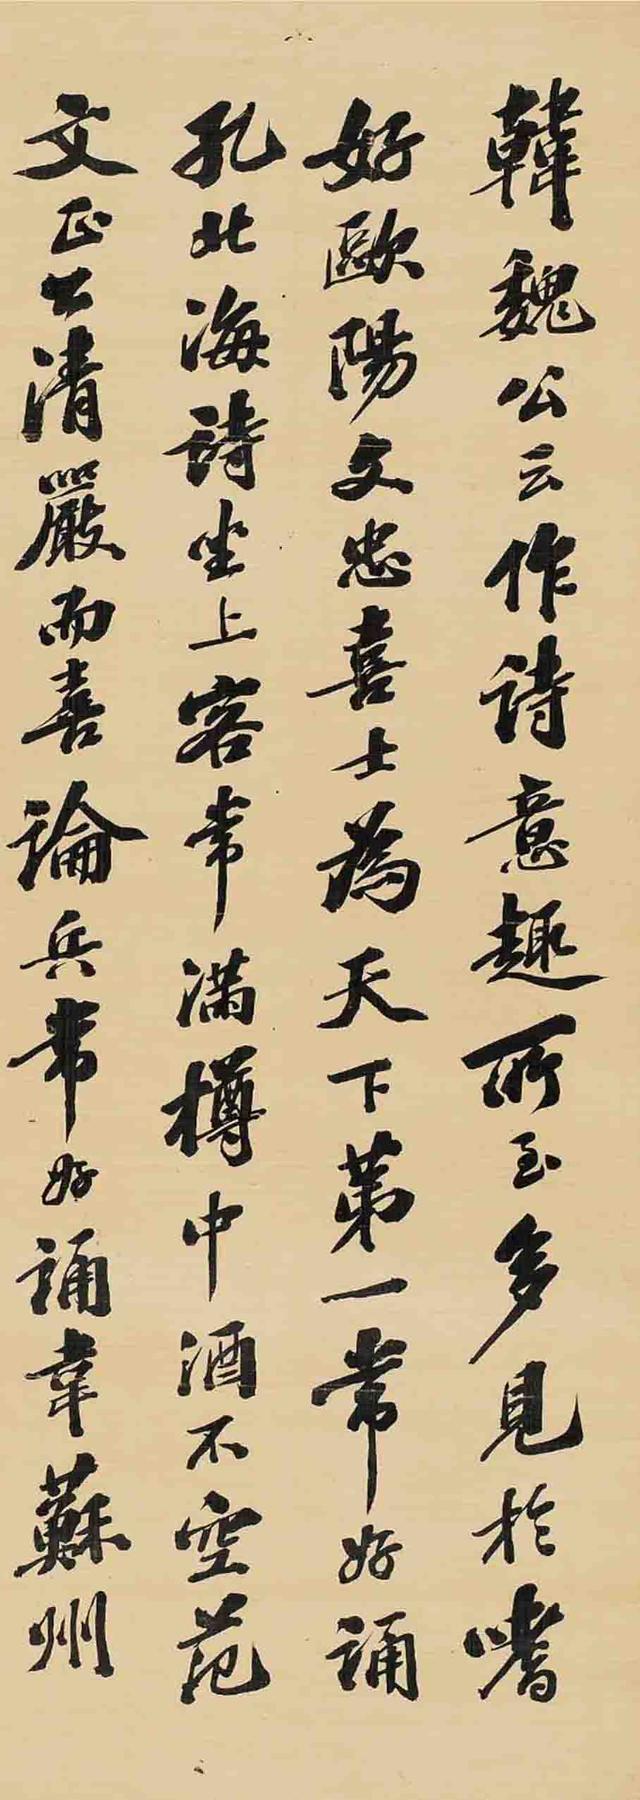 韓魏公云作詩意趣所至多見於嗜
好歐陽文忠喜士為天下第一常好誦
孔北海詩坐上客常滿樽中酒不空范
文正公清嚴而喜論兵常好誦韋蘇州